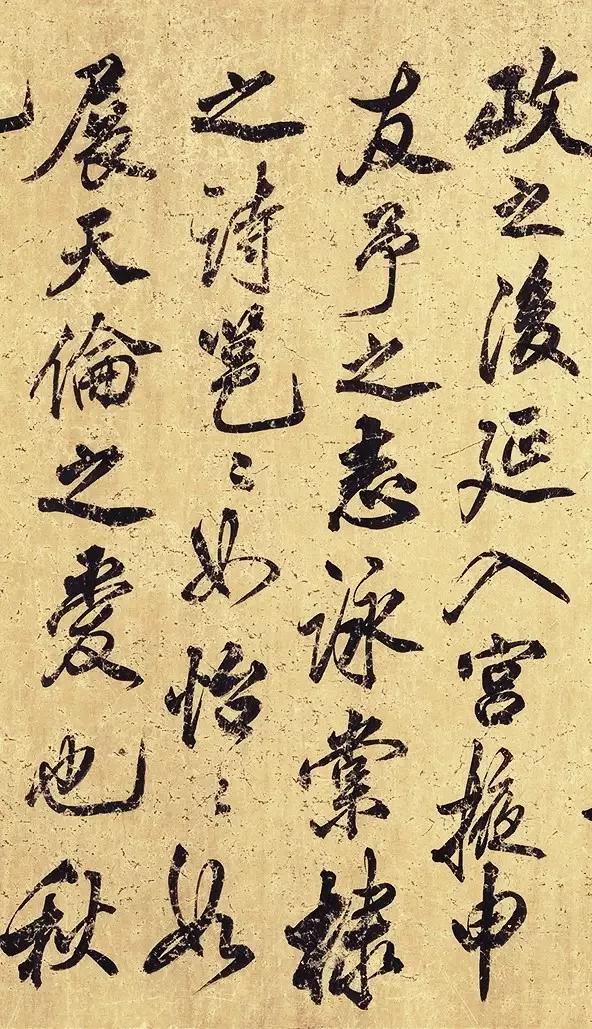 政之後延入宮掖申
友于之志詠棠棣
之詩邕〻如怡〻如
展天倫之愛也秋